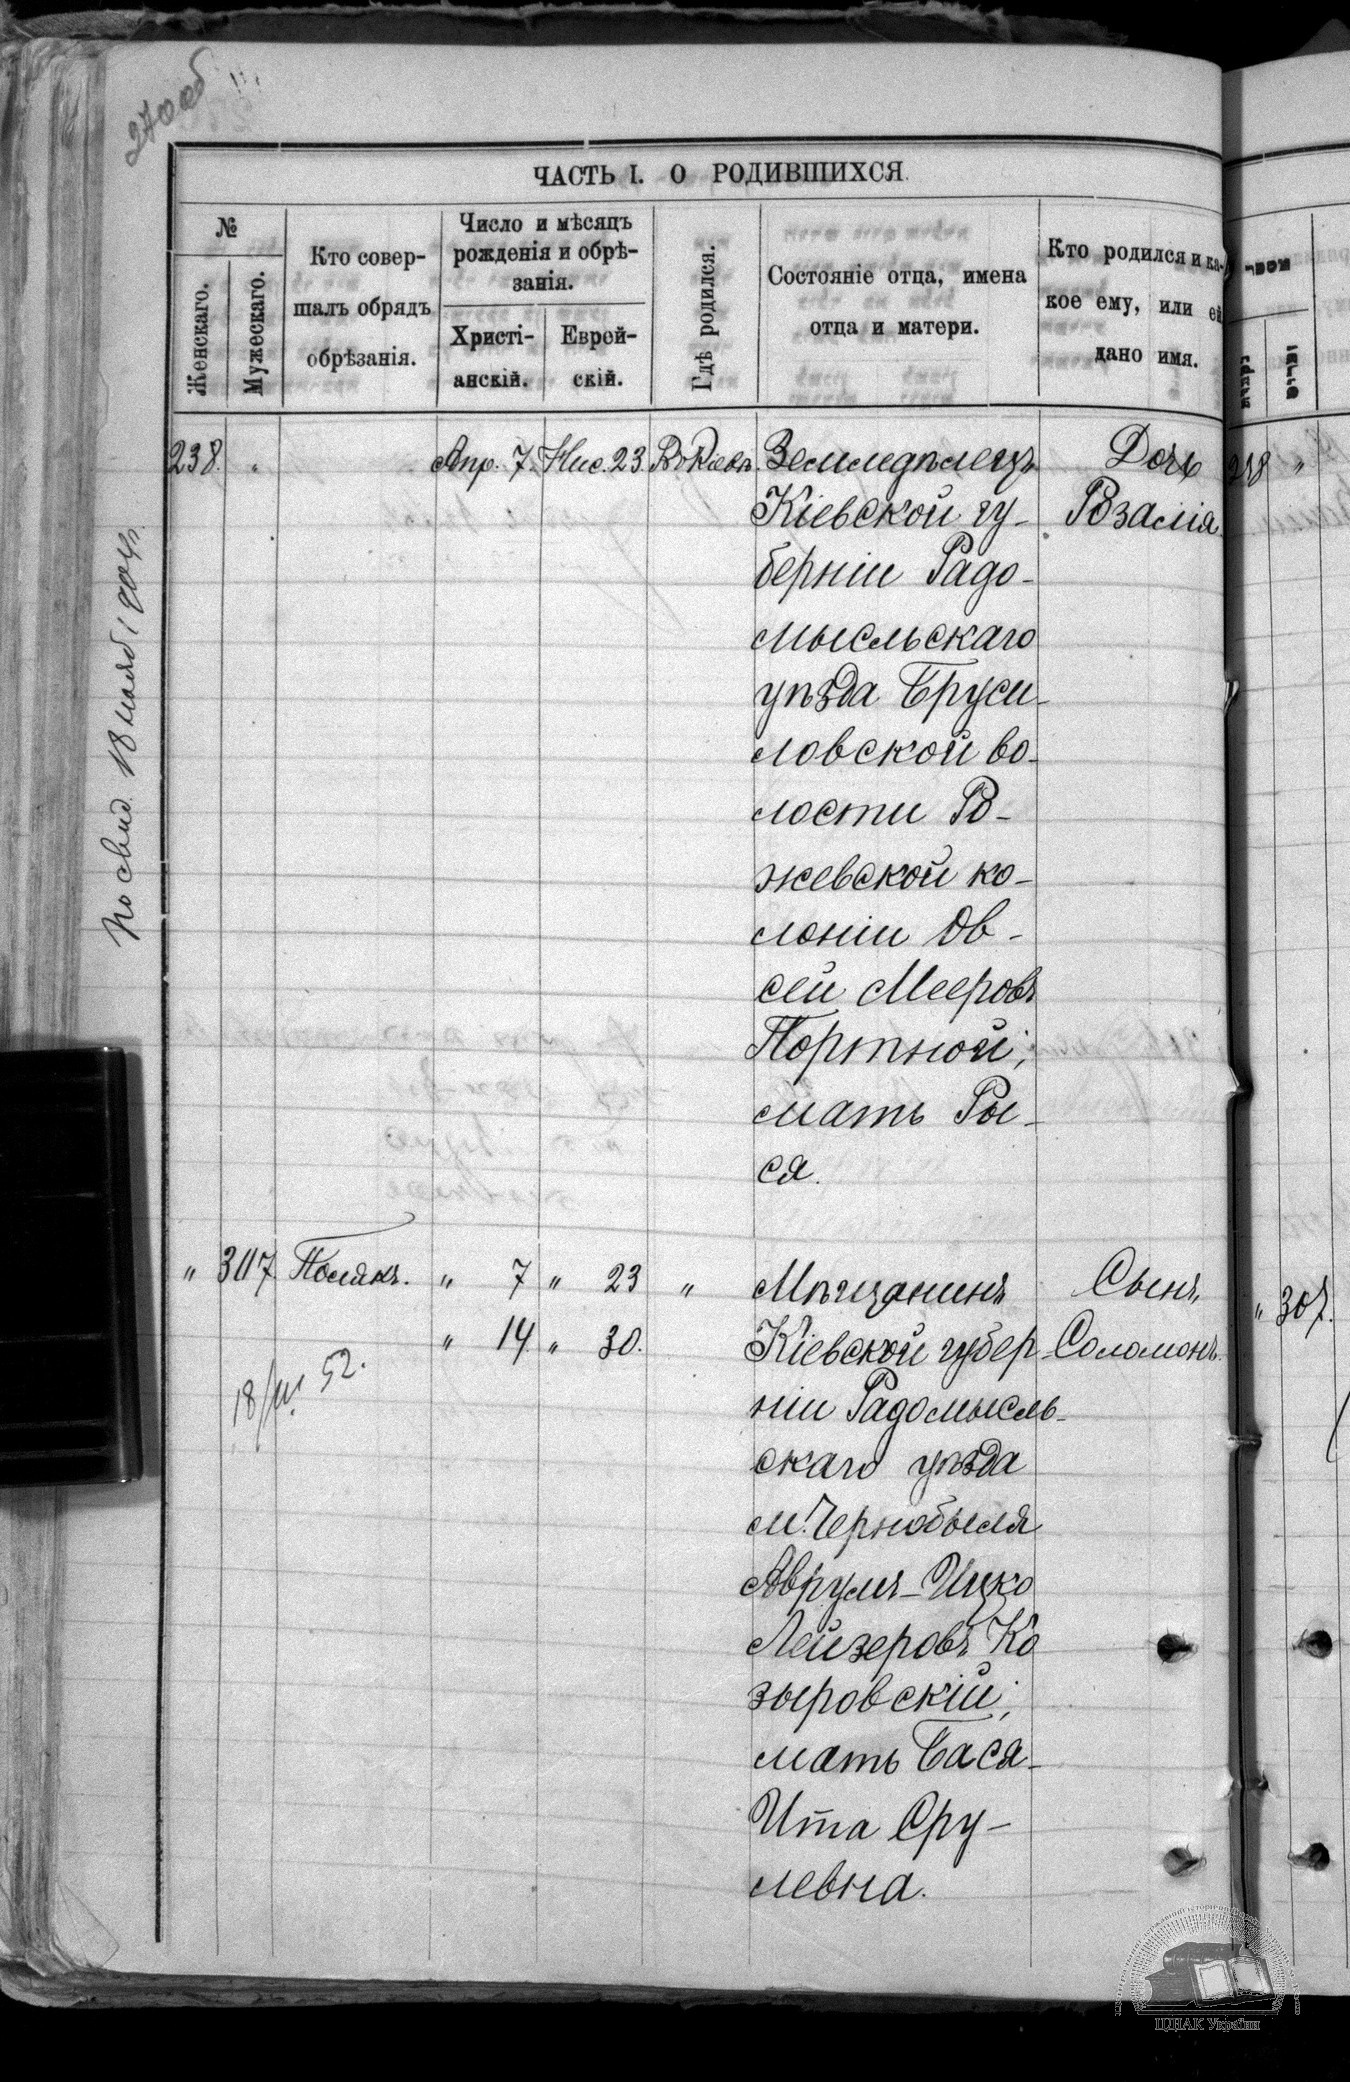 270 об
ЧАСТЬ I. О РОДИВШИХСЯ.
№
Женскаго.
Мужескаго.
Кто совер-
шалъ обрядъ
обрѣзанія.
Число и мѣсяцъ
рожденія и обрѣ-
занія.
Христі-
анскій.
Еврей-
скій.
Гдѣ родился.
Состояніе отца, имена
отца и матери.
Кто родился и ка-
кое ему, или ей
дано имя.
238. " Апр. 7. Нис. 23. Въ Кіевѣ. Земледѣлецъ Дочь
Кіевской гу- Розалія.
берніи Радо-
мысльскаго
уѣзда Бруси-
ловской во-
лости Ро-
жевской ко-
лоніи Ов-
сей Мееровъ
Портной;
мать Ры-
ся.
" 307 Полякъ. " 7 " 23 " Мѣщанинъ Сынъ
" 14 " 30. Кіевской губер- Соломонъ.
ніи Радомысль-
скаго уѣзда
м. Чернобыля
Аврумъ-Ицко
Лейзеровъ Ко
зыровскій;
мать Бася-
Ита Сру-
левна.
18/III 52.
По свид. 18 нояб 1904 г.
238 "
" 307.
ЦДІАК України